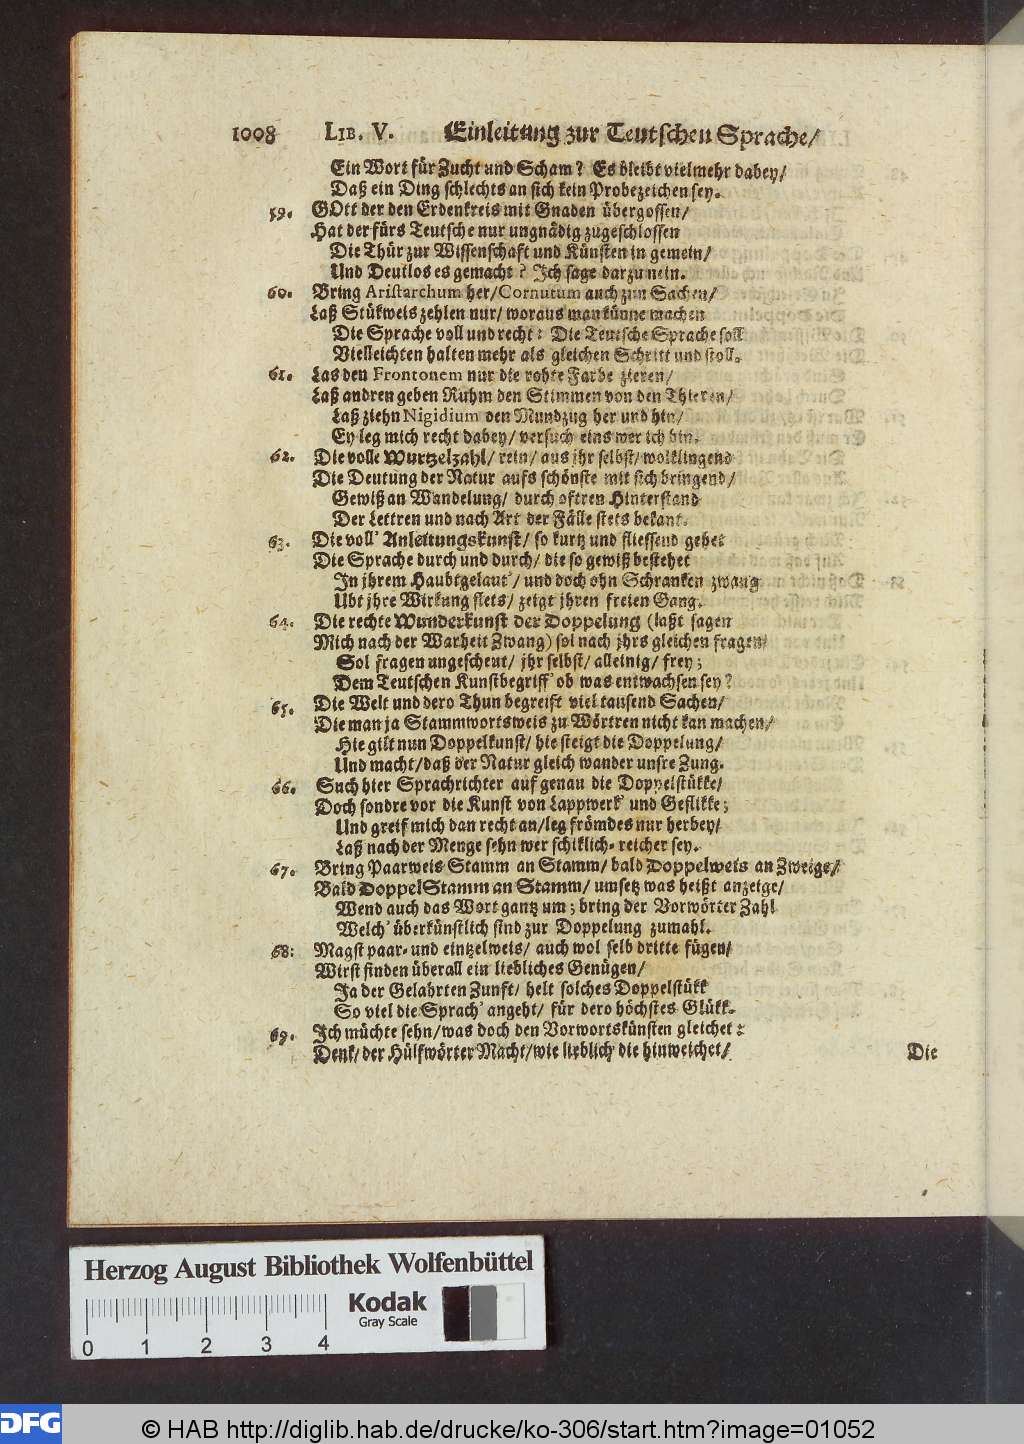 1008 LIB. V. Einleitung zur Teutschen Sprache/
Ein Wort für Zucht und Scham? Es bleibt vielmehr dabey/
Daß ein Ding schlechts an sich kein Probezeichen sey.
59. GOtt der den Erdenkreis mit Gnaden übergossen/
Hat der fürs Teutsche nur ungnädig zugeschlossen
Die Thür zur Wissenschaft und Künsten in gemein/
Und Deutlos es gemacht? Ich sage darzu nein.
60. Bring Aristarchum her/ Cornutum auch zun Sachen/
Laß Stükweis zehlen nur/ woraus man künne machen
Die Sprache voll und recht: Die Teutsche Sprache soll
Vielleichten halten mehr als gleichen Schritt und stoll.
61. Las den Frontonem nur die rohte Farbe zieren/
Laß andren geben Ruhm den Stimmen von den Thieren/
Laß ziehn Nigidium den Mundzug her und hin/
Ey leg mich recht dabey/ versuch eins wer ich bin.
62. Die volle Wurtzelzahl/ rein/ aus jhr selbst/ wolklingend
Die Deutung der Natur aufs schönste mit sich bringend/
Gewiß an Wandelung/ durch oftren Hinterstand
Der Lettren und nach Art der Fälle stets bekant.
63. Die voll' Anleitungskunst/ so kurtz und fliessend gehet
Die Sprache durch und durch/ die so gewiß bestehet
In jhrem Haubtgelaut'/ und doch ohn Schranken zwang
Übt jhre Wirkung stets/ zeigt jhren freien Gang.
64. Die rechte Wunderkunst der Doppelung (laßt sagen
Mich nach der Warheit Zwang) sol nach jhrs gleichen fragen/
Sol fragen ungescheut/ jhr selbst/ alleinig/ frey;
Dem Teutschen Kunstbegriff' ob was entwachsen sey?
65. Die Welt und dero Thun begreift viel tausend Sachen/
Die man ja Stammwortsweis zu Wörtren nicht kan machen/
Hie gilt nun Doppelkunst/ hie steigt die Doppelung/
Und macht/ daß der Natur gleich wander unsre Zung.
66. Such hier Sprachrichter auf genau die Doppelstükke/
Doch sondre vor die Kunst von Lappwerk' und Geflikke;
Und greif mich dan recht an/ leg frömdes nur herbey/
Laß nach der Menge sehn wer schiklich-reicher sey.
67. Bring Paarweis Stamm an Stamm/ bald Doppelweis an Zweige/
Bald DoppelStamm an Stamm/ umsetz was heißt anzeige/
Wend auch das Wort gantz um; bring der Vorwörter Zahl
Welch' überkünstlich sind zur Doppelung zumahl.
68: Magst paar- und eintzelweis/ auch wol selb dritte fügen/
Wirst finden überall ein liebliches Genügen/
Ja der Gelahrten Zunft/ helt solches Doppelstükk
So viel die Sprach' angeht/ für dero höchstes Glükk.
69. Ich müchte sehn/ was doch den Vorwortskünsten gleichet:
Denk/ der Hülfwörter Macht/ wie lieblich die hinweichet/
Die
Herzog August Bibliothek Wolfenbüttel
Kodak
Gray Scale
0 1 2 3 4
DFG
© HAB http://diglib.hab.de/drucke/ko-306/start.htm?image=01052